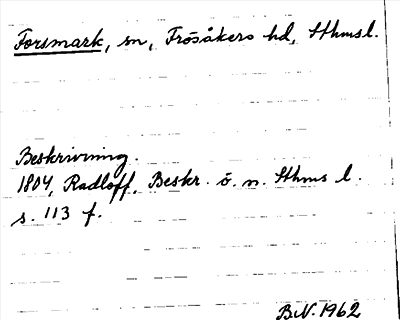 Forsmark, sn, Frösåkers hd, Sthmsl.
Beskrivning.
1804, Radloff, Beskr. ö. n. Sthms l.
s. 113 f.
B.N. 1962